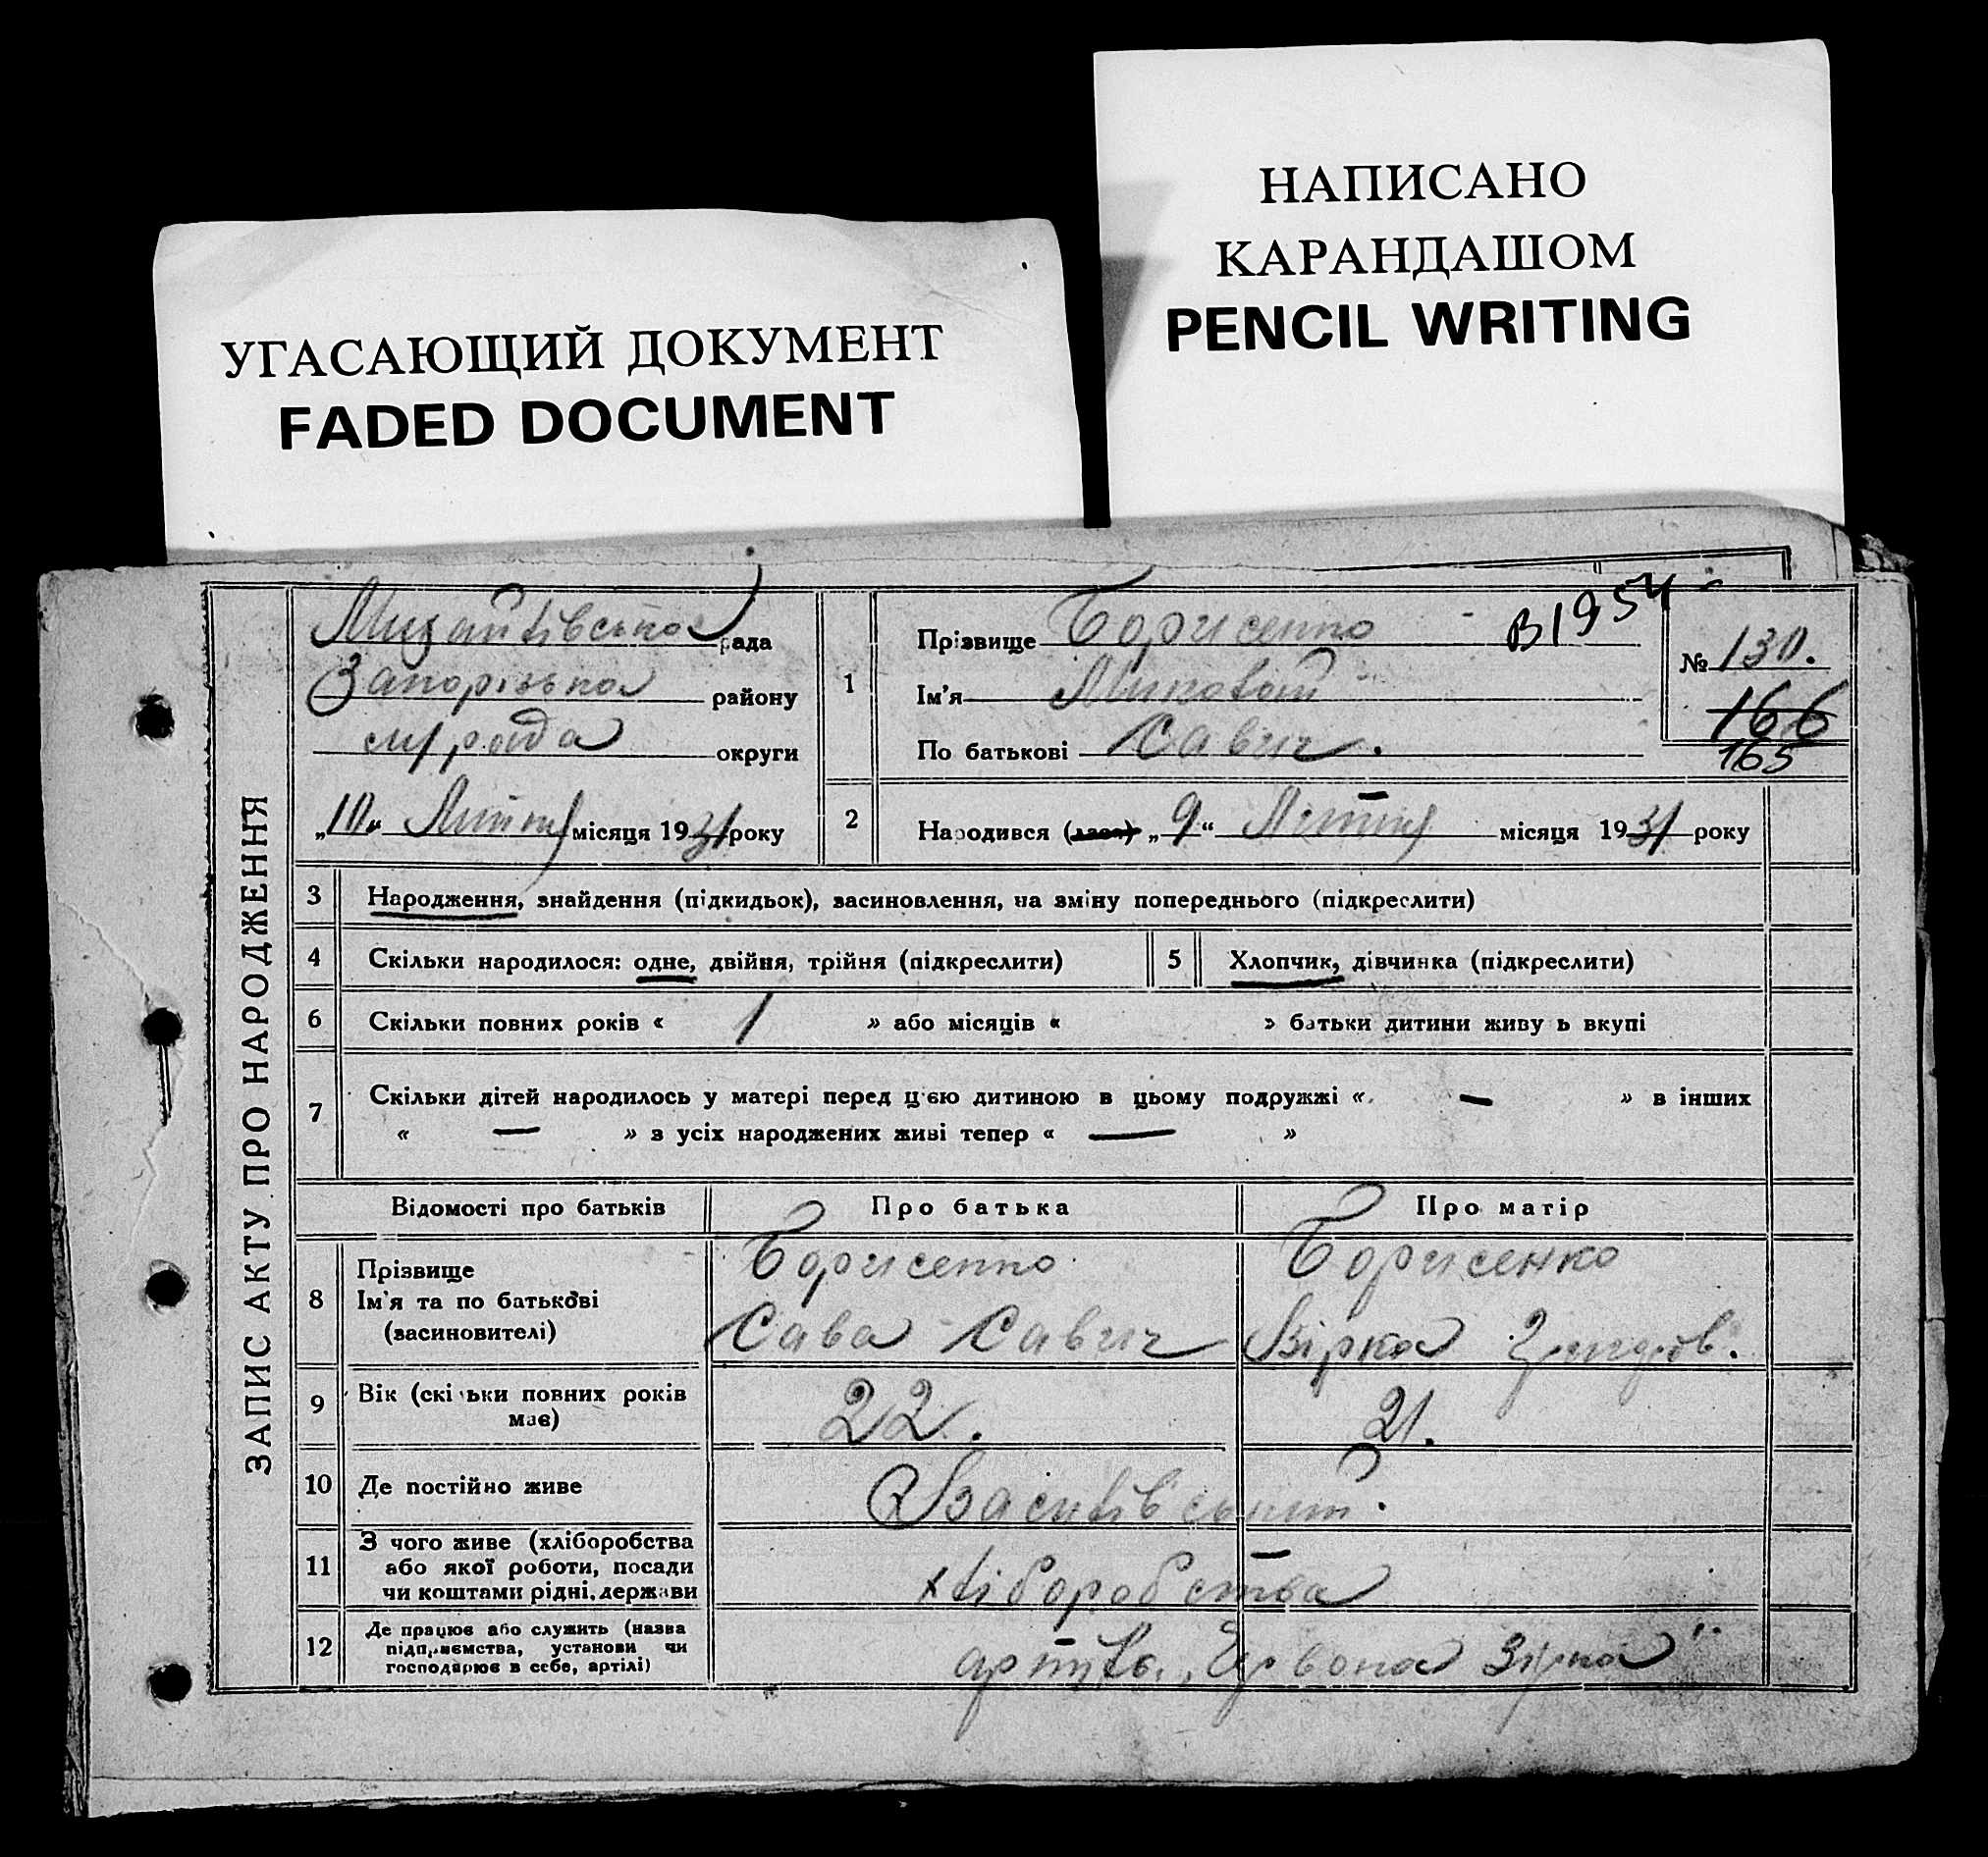 НАПИСАНО
КАРАНДАШОМ
PENCIL WRITING
УГАСАЮЩИЙ ДОКУМЕНТ
FADED DOCUMENT
ЗАПИС АКТУ ПРО НАРОДЖЕННЯ
Михайлівська рада
Запорізька району
м/рада округи
„10“ Липня місяця 1931 року
1
Прізвище Борисенко
В1954
Ім'я Миколай
По батькові Савич.
№ 130.
166
165
2
Народився „9“ Липня місяця 1931 року
3 Народження, знайдення (підкидьок), засиновлення, на зміну попереднього (підкреслити)
4 Скільки народилося: одне, двійня, трійня (підкреслити) 5 Хлопчик, дівчинка (підкреслити)
6 Скільки повних років « 1 » або місяців « » батьки дитини живу ь вкупі
7 Скільки дітей народилось у матері перед цією дитиною в цьому подружжі « — » в інших
« — » з усіх народжених живі тепер « — »
Відомості про батьків Про батька Про матір
8 Прізвище
Ім'я та по батькові
(засиновителі)
Борисенко
Сава Савич
Борисенко
Вірка
9 Вік (скільки повних років
має)
22. 21.
10 Де постійно живе
Василівський.
11 З чого живе (хліборобства
або якої роботи, посади
чи коштами рідні, держави
хліборобства
12 Де працює або служить (назва
підприємства, установи чи
господарює в себе, артілі)
артіль „Червона Зірка"